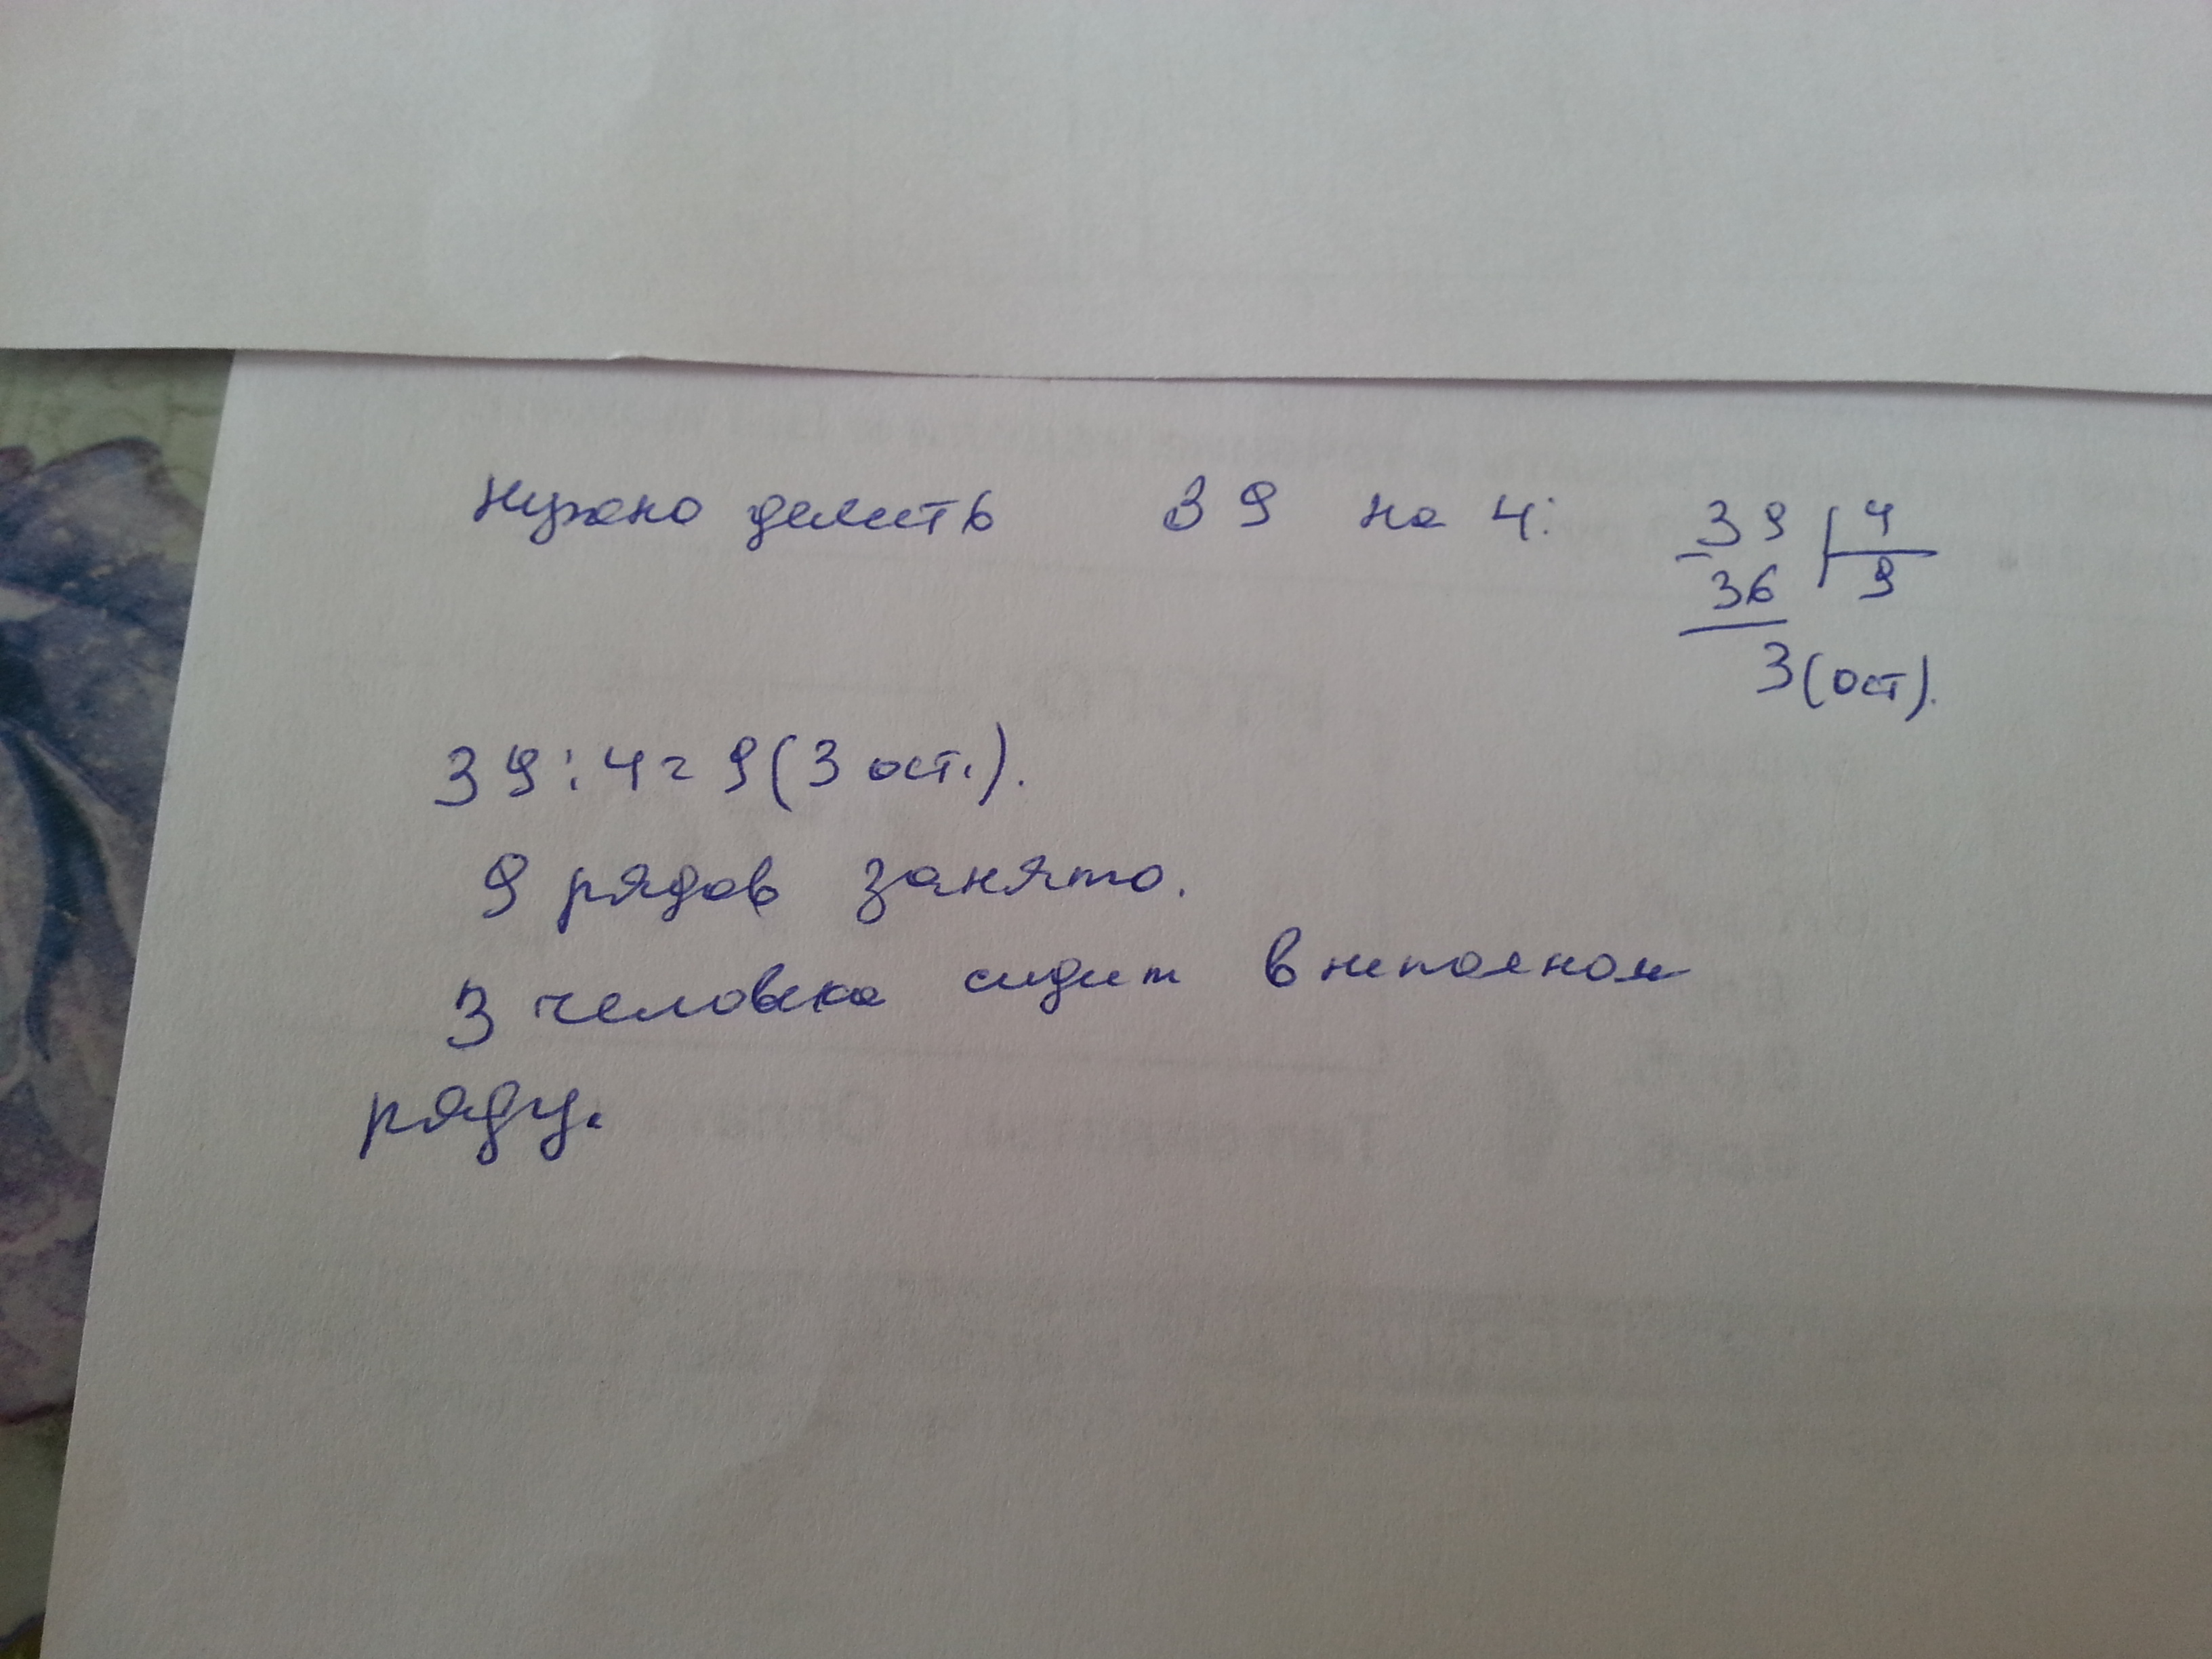 Нужно делить 39 на 4:
39 | 4
- 36 | 9
3 (ост).
39 : 4 = 9 (3 ост.).
9 рядов занято.
3 человека сидит в неполном
ряду.